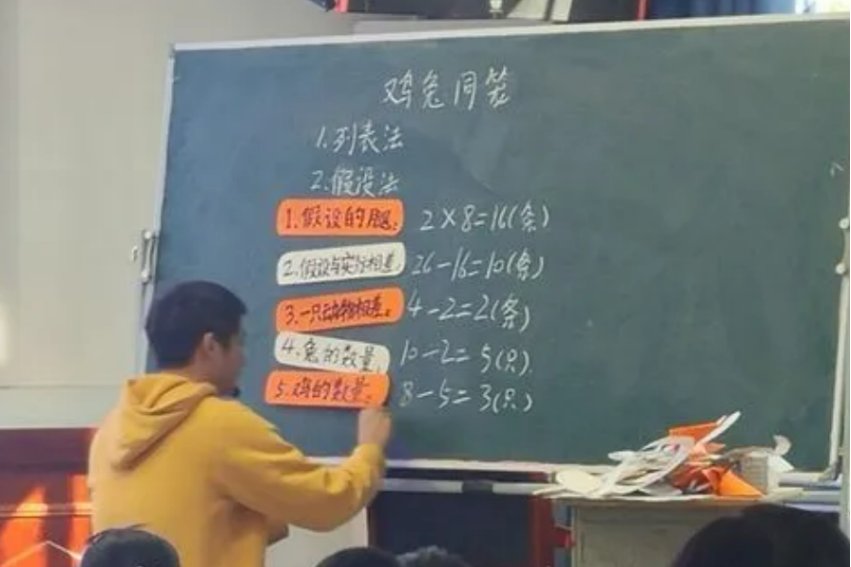 鸡兔同笼
1.列表法
2.假设法
1.假设的腿: 2×8=16(条)
2.假设与实际相差: 26-16=10(条)
3.一只动物相差: 4-2=2(条)
4.兔的数量: 10-2=5(只)
5.鸡的数量: 8-5=3(只)